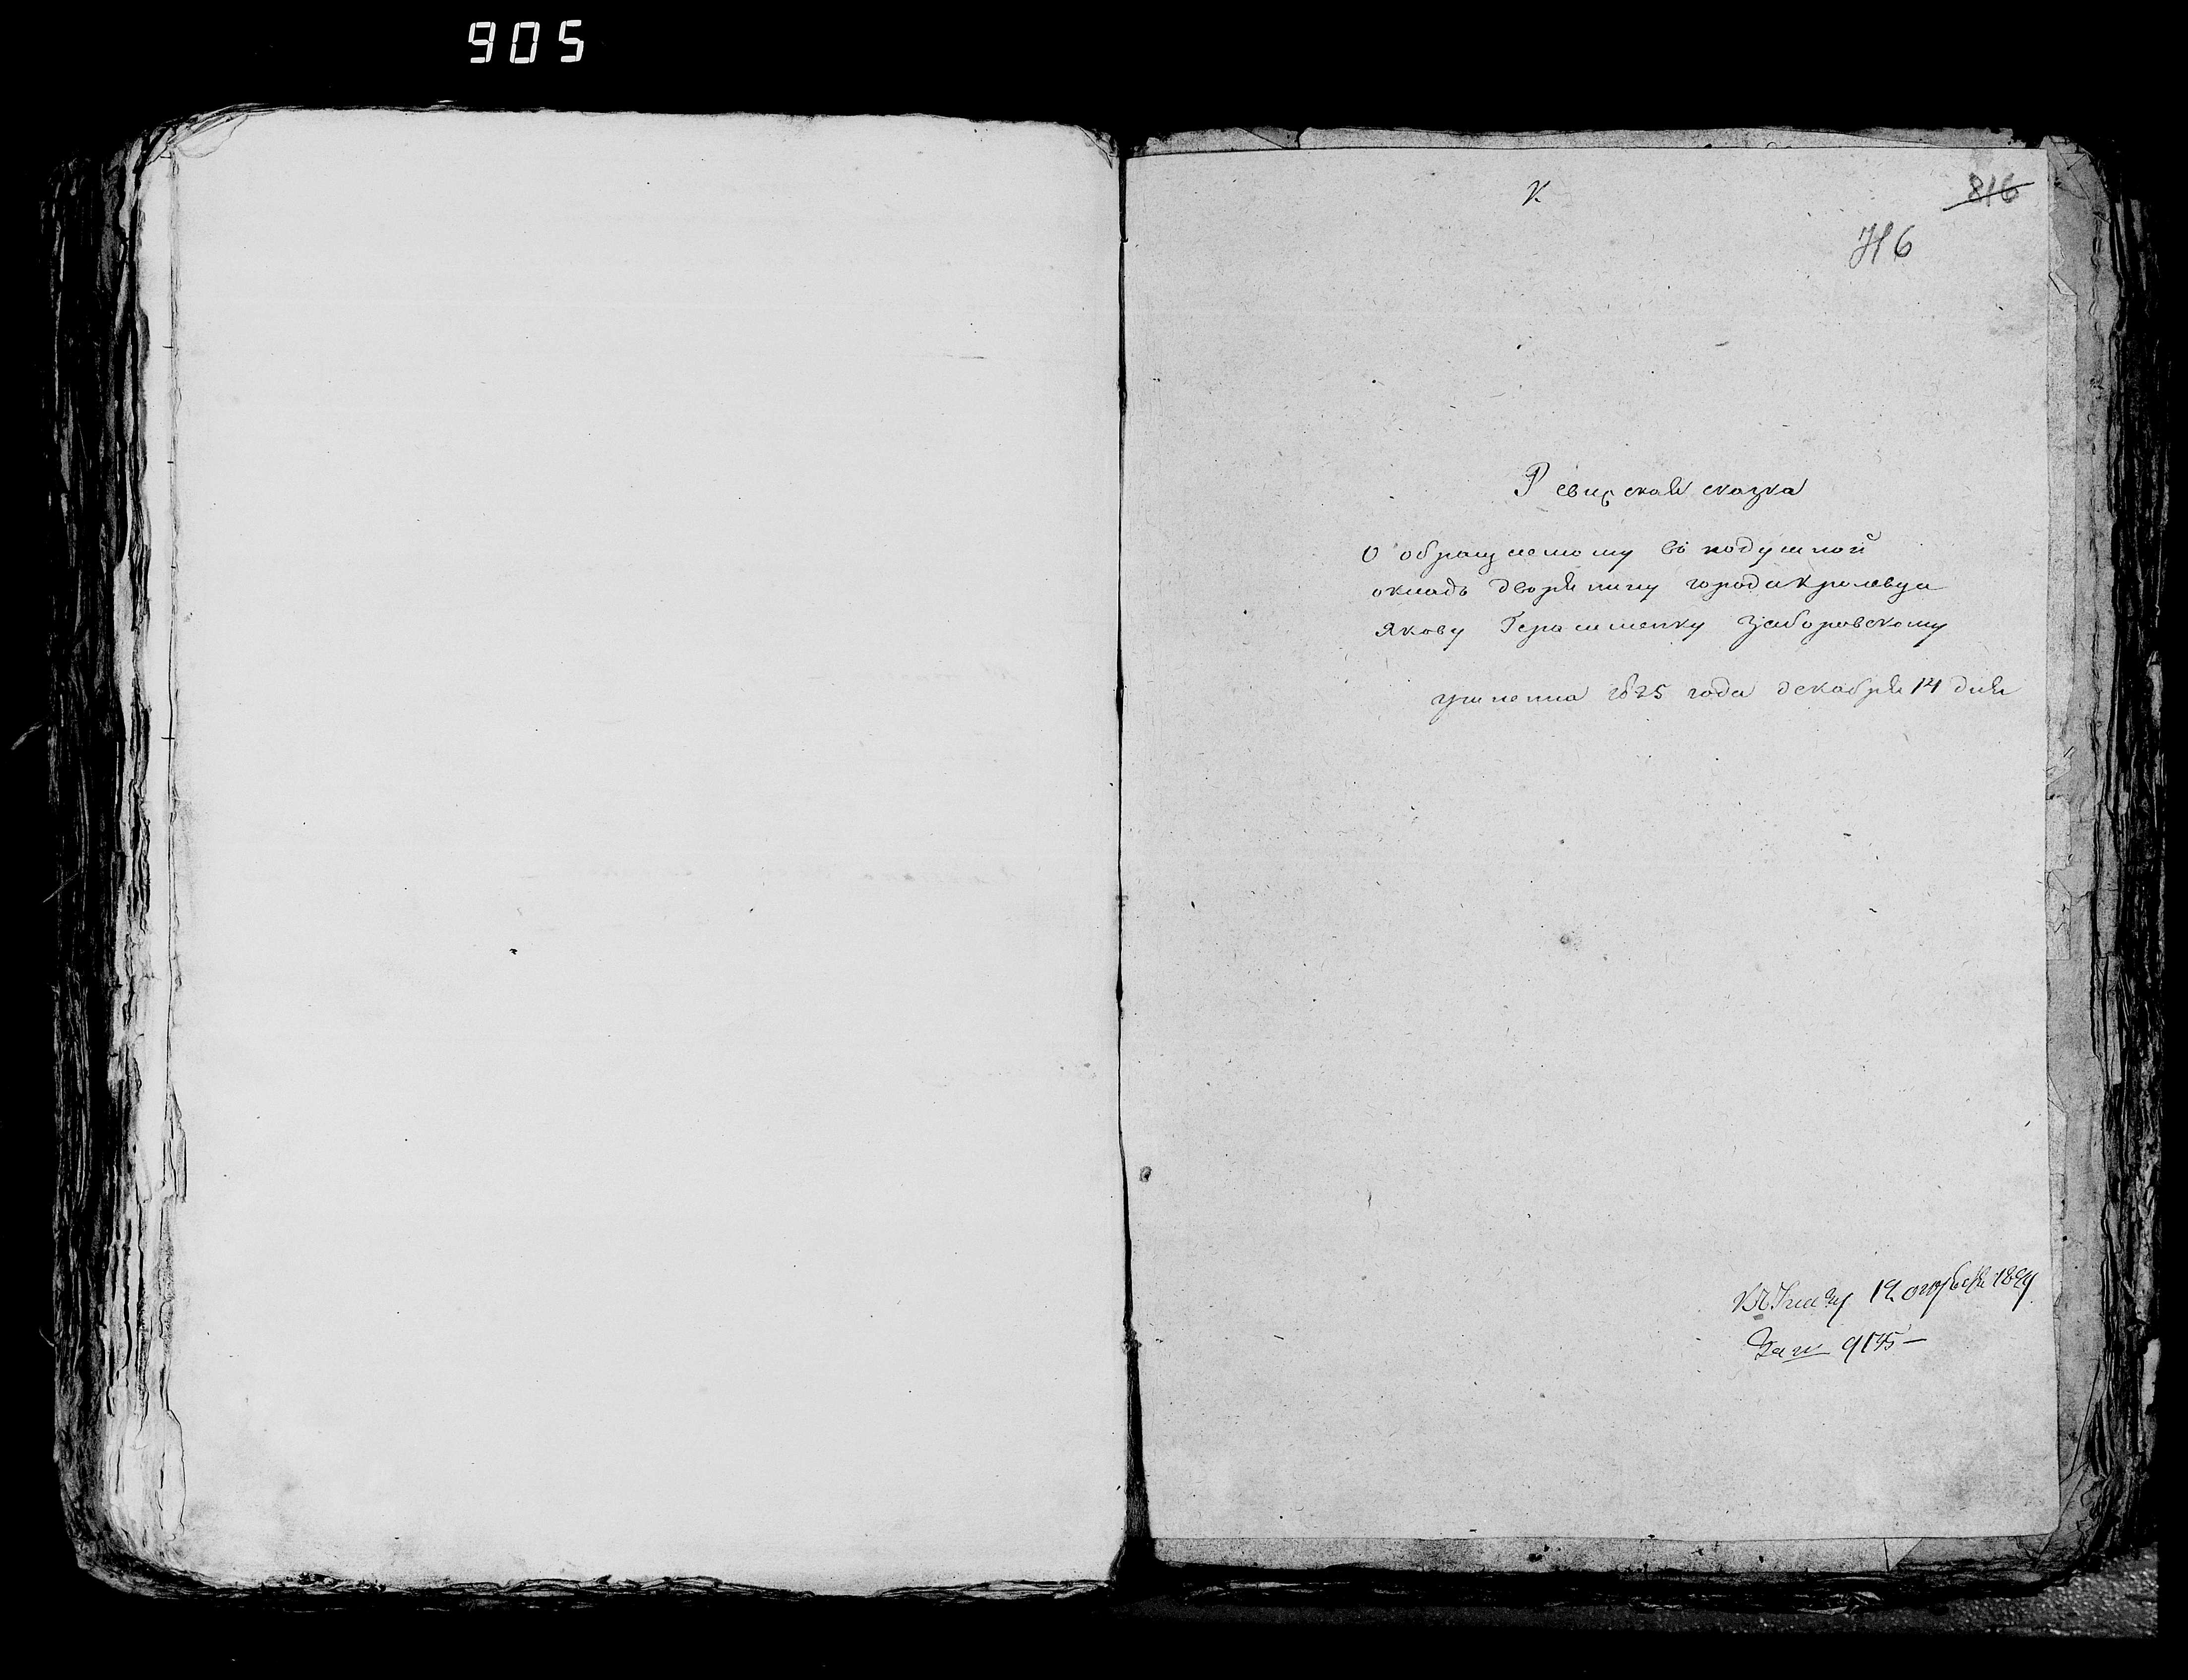 905
К
816
716
Ревизская сказка
О обращенному в подушной
окладъ дворянину города Кролевца
Якову Герасименку Заборовскому
учинена 1825 года декабря 14 дня
12 октября